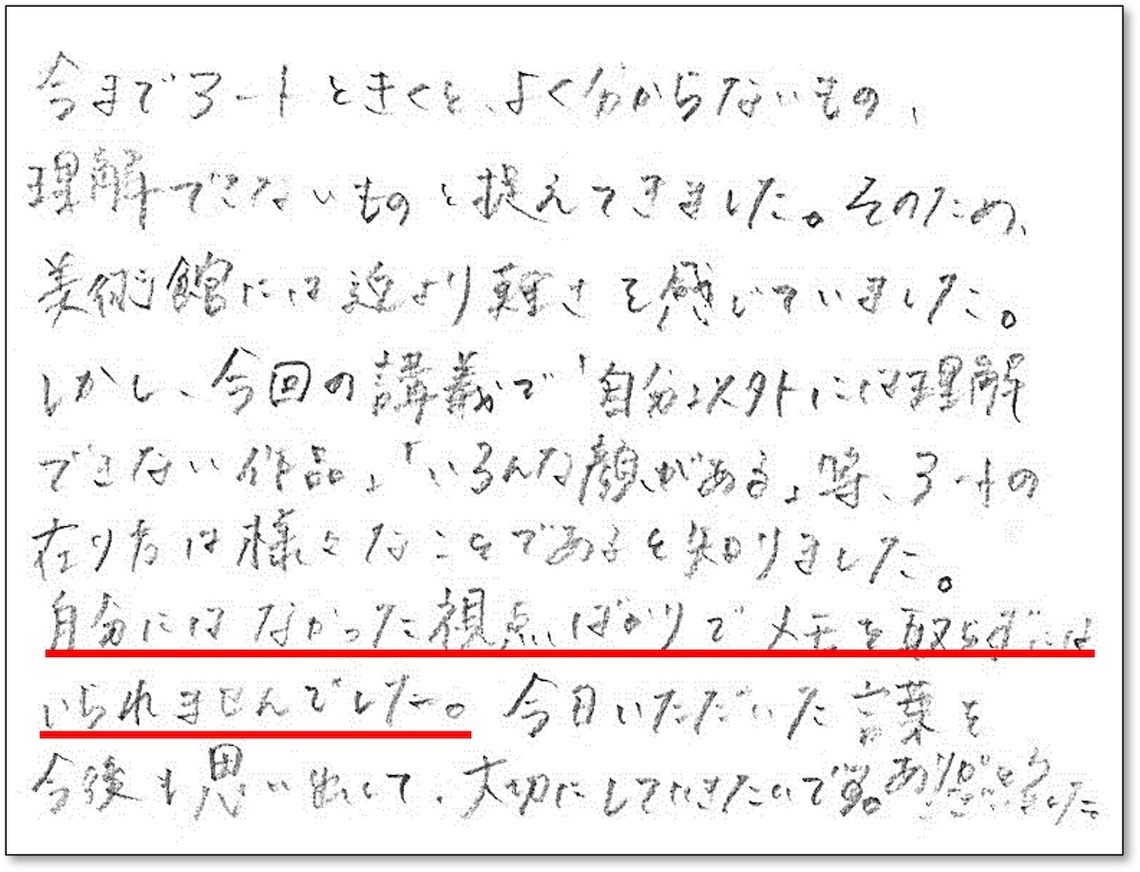 今までアートときくと、よく分からないもの、
理解できないものと捉えてきました。そのため、
美術館には近より難さを感じていました。
しかし、今回の講義で「自分以外には理解
できない作品」「いろんな顔がある」等、アートの
在り方は様々なことであると知りました。
自分にはなかった視点ばかりでメモを取らずには
いられませんでした。今日いただいた言葉を
今後も思い出して、大切にしていきたいです。ありがとうございました。